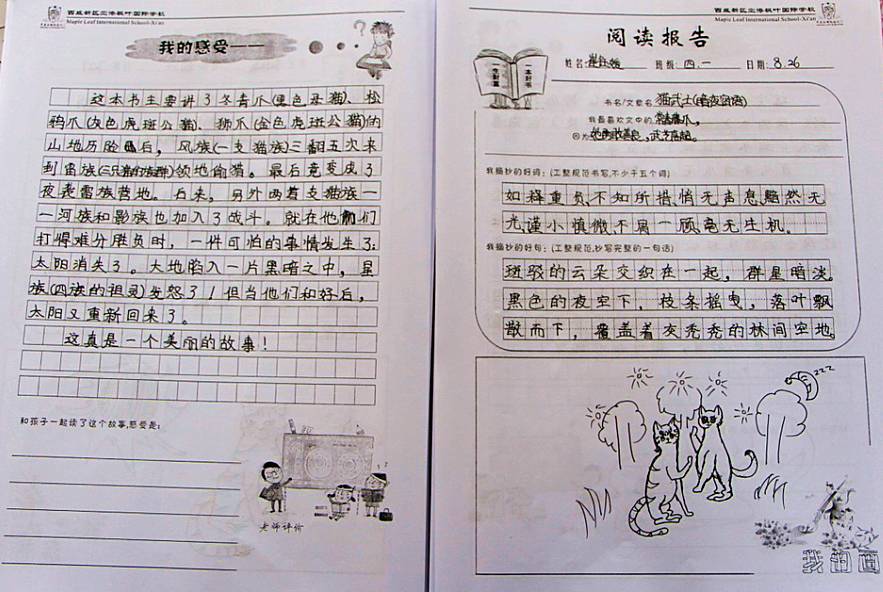 西咸新区空港枫叶国际学校
Maple Leaf International School-Xi'an
我的感受——
这本书主要讲了冬青爪(黑色母猫)、松
鸦爪(灰色虎斑公猫)、狮爪(金色虎斑公猫)的
山地历险后，风族(一支猫族)三翻五次来
到雷族(三只猫的族群)领地偷猎。最后竟变成了
夜袭雷族营地。后来，另外两着支猫族一
一河族和影族也加入了战斗。就在他们
打得难分胜负时，一件可怕的事情发生了:
太阳消失了。大地陷入一片黑暗之中，星
族(四族的祖灵)发怒了！但当他们和好后，
太阳又重新回来了。
这真是一个美丽的故事！
和孩子一起读了这个故事,感受是:
老师评价
西咸新区空港枫叶国际学校
Maple Leaf International School-Xi'an
阅读报告
姓名: 班级: 四.一 日期: 8.26
一本好书
一生财富
书名/文章名 猫武士(暗夜长影)
我最喜欢文中的
因为 她勇敢善良，武艺高超。
我摘抄的好词：(工整规范书写,不少于五个词)
如释重负、不知所措、悄无声息、黯然无
光、谨小慎微、不屑一顾、毫无生机。
我摘抄的好句：(工整规范,抄写完整的一句话)
斑驳的云朵交织在一起，群星暗淡。
黑色的夜空下，枝条摇曳，落叶飘
散而下，覆盖着灰秃秃的林间空地。
zzz
我的画